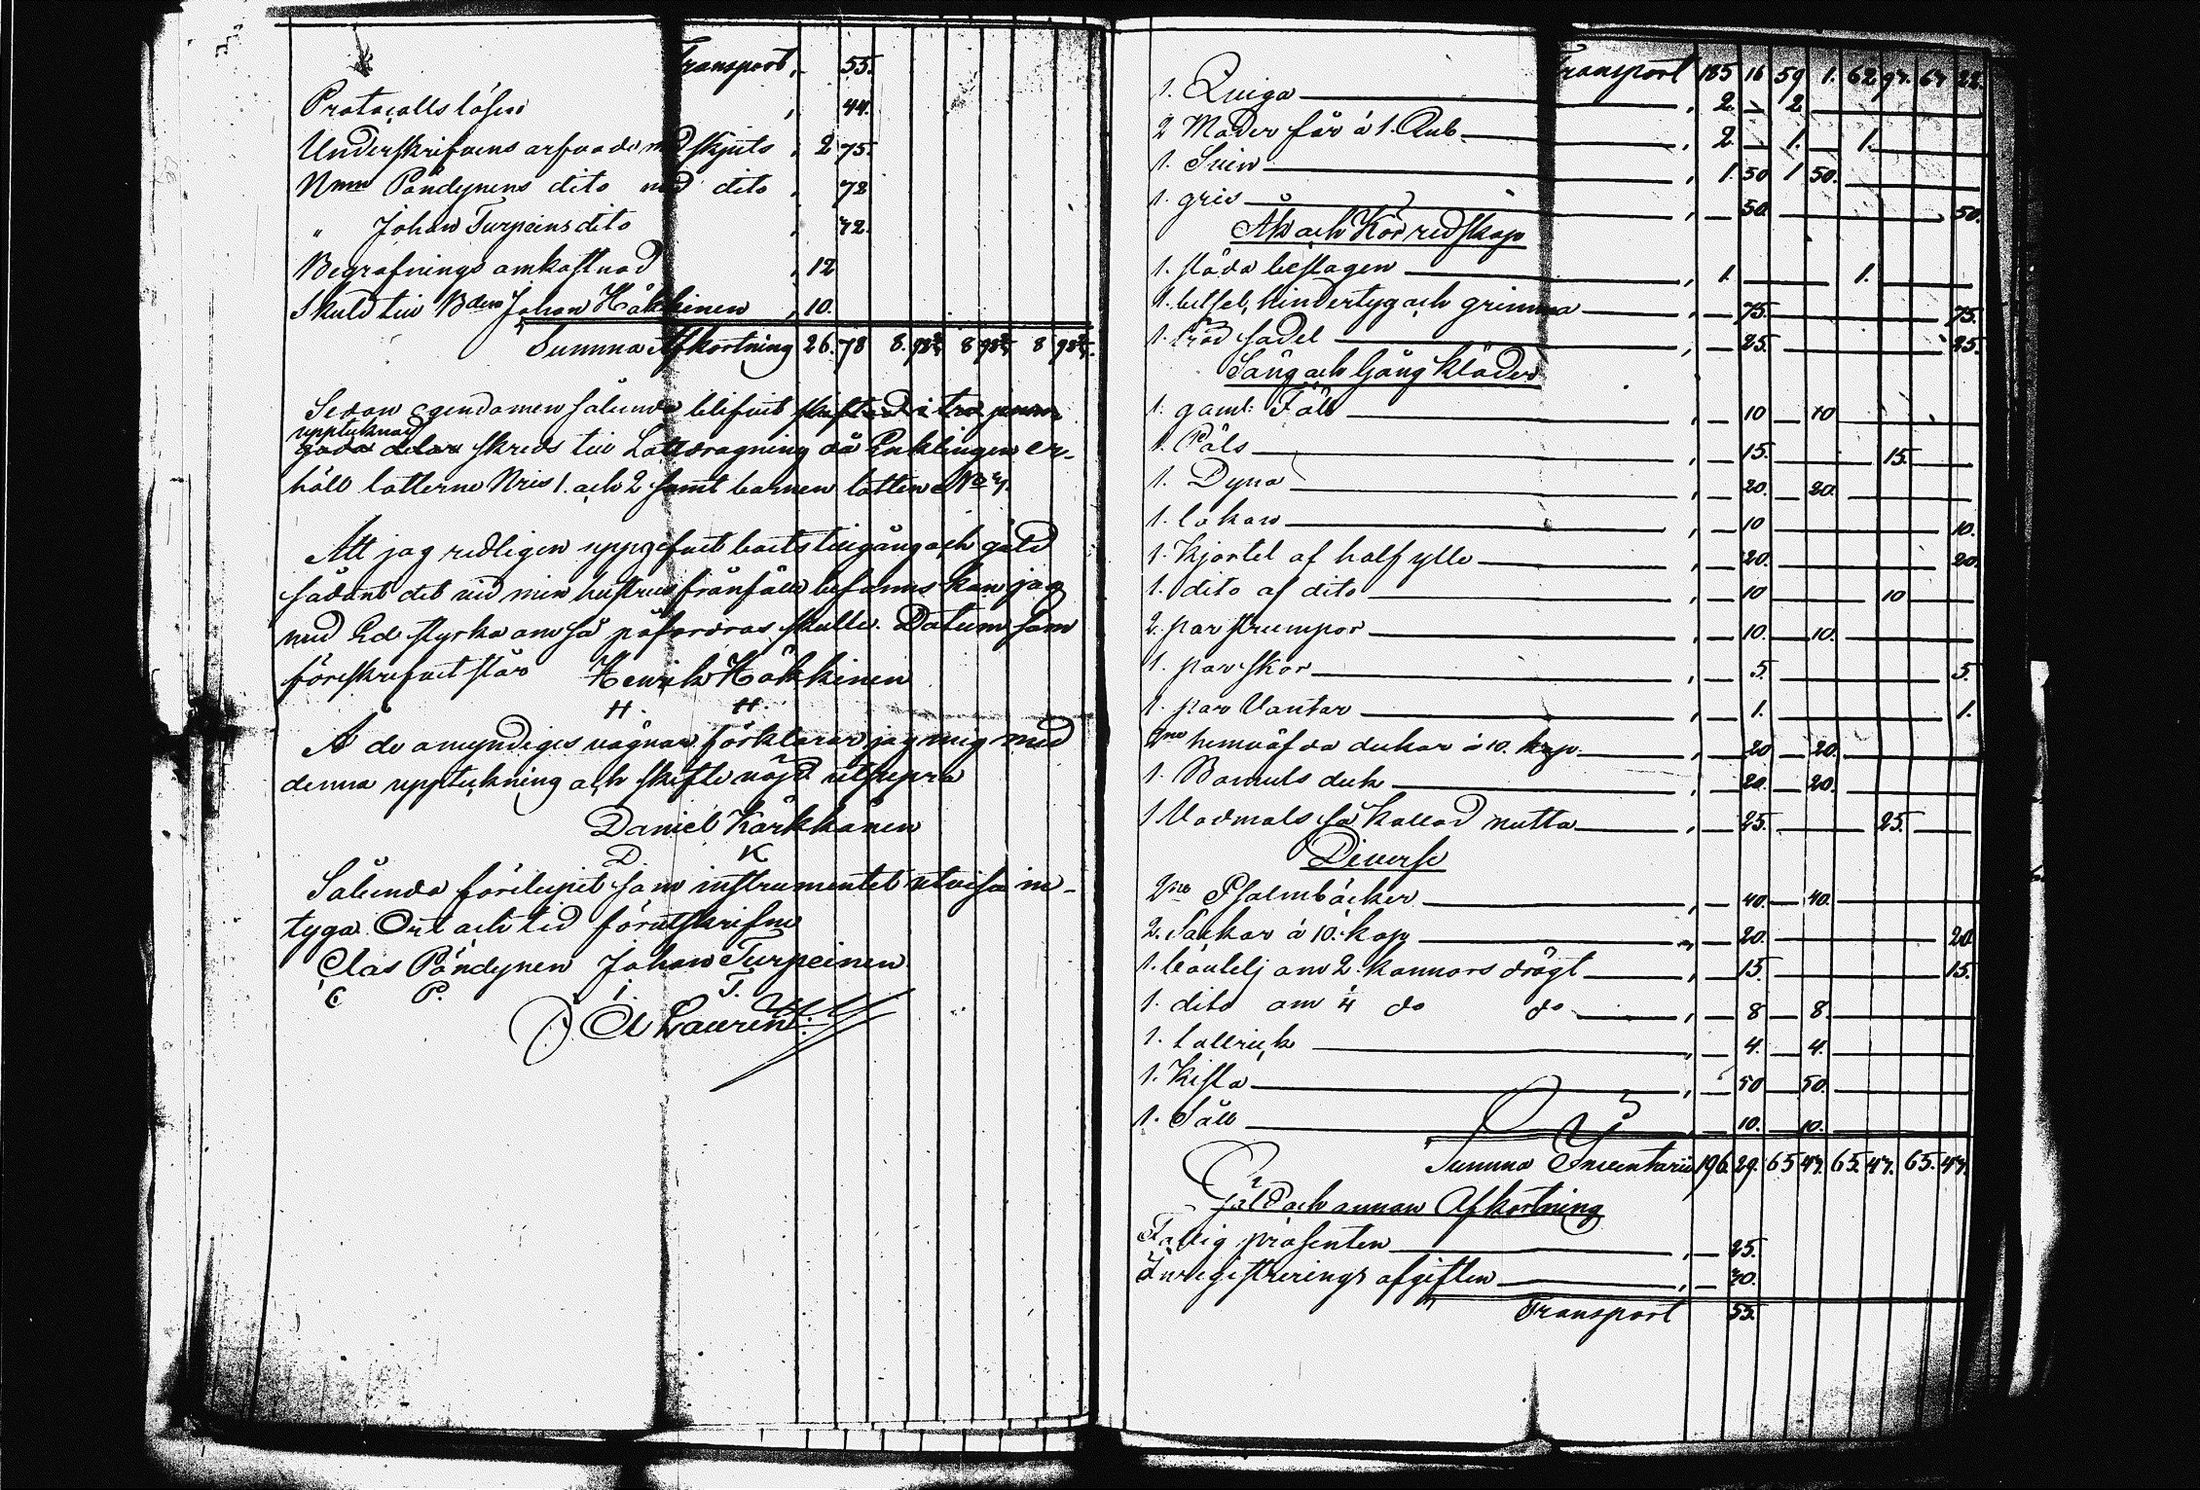 Transport, 55.
Protocolls lösen , 44.
Underskrifvens arfvode med skjuts , 2 75.
Nmn Pöndynens dito med dito , 72
" Johan Turpeins dito , 72.
Begrafnings omkostnad , 12
Skuld till Bden Johan Häkkinen , 10.
Summa Afkortning 26. 78 8. 92⅔ 8 92⅔ 8 92⅔.
Sedan egendomen sålunda blifvit
upptecknad
skreds till Lottdragning då Enklingen er-
höll lotterne Nris 1. och 2 samt barnen lotten No 3.
Att jag redligen uppgifvit boets tillgång och gäld
sådant det vid min hustrus frånfälle befanns kan jag
med Ed styrka om så påfordras skulle. Datum som
föreskrifvit står Henrik Häkkinen
H. H.
Å de omyndiges vägnar förklarar jag mig med
denna uppteckning och skifte nöjd utsupra
Daniel Kärkkänen
D. K
Sålunda förelupit som instrumentet utvisar in-
tyga. Ort och tid förutskrifne
Clas Pöndynen Johan Turpeinen
C. P. J. T.
Transport 185 16 59 1. 62 94. 64 22.
1. Quiga , 2. — 2.
2 Moder får á 1. Rub , 2. — 1. — 1.
1. Svin , 1. 50 1 50.
1. gris , — 50. 50.
Åk och Körredskap
1. släda beslagen , 1. 1.
1. betsel, hindertyg och grimma , — 75. 75.
1. sadel , — 25. 25.
Säng och Gång Kläder
1. gaml: Fäll , — 10 — 10
1. Päls , — 15. 15.
1. Dyna , — 20. — 20.
1. lakan , — 10 10.
1. Kjortel af half ylle , — 20. 20.
1. dito af dito , — 10 10
2. par strumpor , — 10. — 10.
1. par skor , — 5. 5.
1. par Vantar , — 1. 1.
2ne hemväfda dukar á 10. kop. , — 20 — 20.
1. Bomuls duk , — 20. — 20.
1 Vadmals så kallad mutta , — 25. 25.
Diverse
2ne Psalmböcker , — 40. — 40.
2. Säckar á 10. kop , — 20. 20
1. boutelj om 2. kannors drägt , — 15. 15.
1. dito om ¼ do do , — 8 — 8.
1. tallrick , — 4. — 4.
1. Kista , — 50 — 50.
1. Såll , — 10. — 10.
Summa Inventarii 196. 29. 65 43. 65. 43. 65. 43.
Gäld och annan Afkortning
Fattig procenten , — 25.
Inregistrerings afgiften , — 30.
Transport 55.